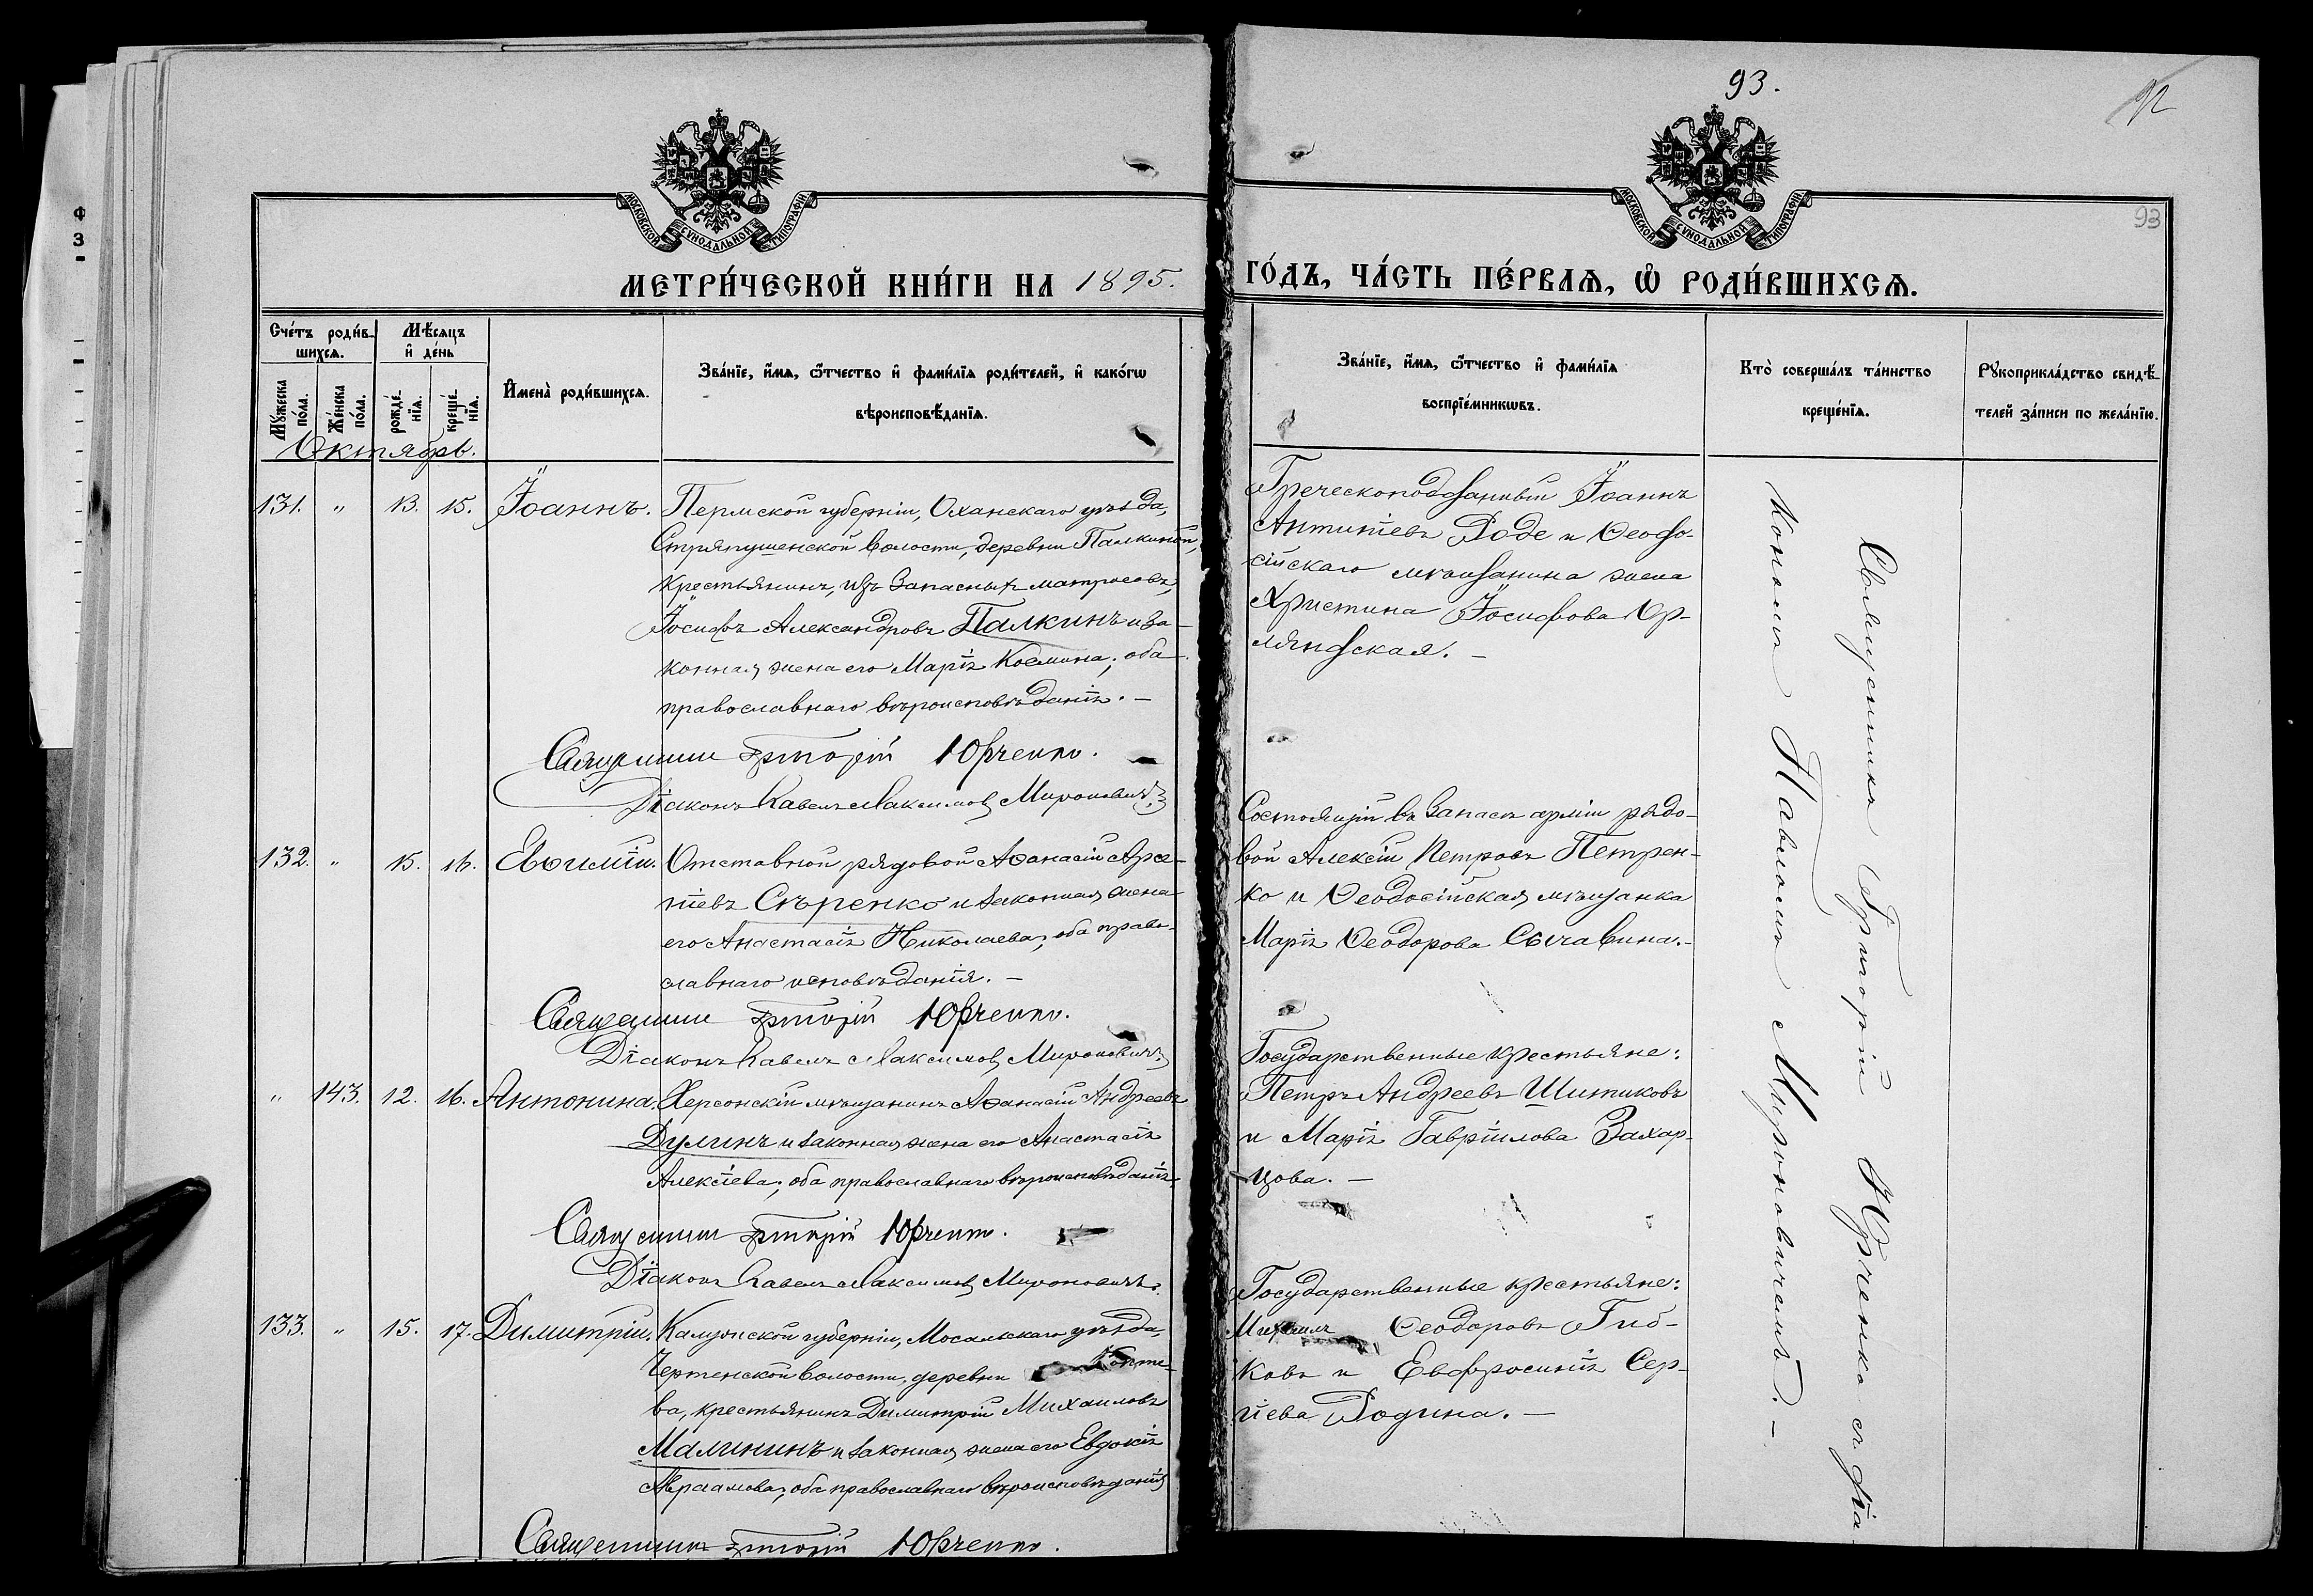 93.
92
93
МОСКОВСКОЙ СѴНОДАЛЬНОЙ ТИПОГРАФІИ
МОСКОВСКОЙ СѴНОДАЛЬНОЙ ТИПОГРАФІИ
МЕТРИ́ЧЕСКОЙ КНИ́ГИ НА 1895.
ГО́ДЪ, ЧА́СТЬ ПЕ́РВАѦ, Ѽ РОДИ́ВШИХСѦ.
Сче́тъ роди́в-
шихсѧ.
Мꙋ́жеска по́ла.
Же́нска по́ла.
Мѣ́сѧцъ
и҆ де́нь
рожде́-
нїѧ.
креще́-
нїѧ.
И҆мена̀ роди́вшихсѧ.
Зва́нїе, и҆́мѧ, ѻ҆́тчество и҆ фами́лїѧ роди́телей, и҆ како́гѡ
вѣроисповѣ́данїѧ.
Зва́нїе, и҆́мѧ, ѻ҆́тчество и҆ фами́лїѧ
воспрїе́мникѡвъ.
Кто̀ соверша́лъ та́инство
креще́нїѧ.
Рꙋкоприкла́дство свидѣ́-
телей за́писи по жела́нїю.
Октябрь.
131. " 13. 15. Іоаннъ. Пермской губерніи, Оханскаго уѣзда,
Стряпушенской волости, деревни Палкиной,
крестьянинъ, изъ запасныхъ матросовъ,
Іосифъ Александровъ Палкинъ и за-
конная жена его Марія Космина; оба
православнаго вѣроисповѣданія. –
Священникъ Григорій Юрченко.
Діаконъ Павелъ Максимов Мироновичъ
Греческоподданный Іоаннъ
Антипіевъ Роде и Ѳеодо-
сійскаго мѣщанина жена
Христина Іосифова Ор-
лянская. –
132. " 15. 16. Евѳимій. Отставной рядовой Аѳанасій Арсе-
ніевъ Сѣренко и законная жена
его Анастасія Николаева; оба право-
славнаго исповѣданія. –
Священникъ Григорій Юрченко.
Діаконъ Павелъ Максимов Мироновичъ
Состоящій въ запасѣ арміи рядо-
вой Алексій Петровъ Петрен-
ко и Ѳеодосійская мѣщанка
Марія Ѳеодорова Сычавина. –
" 143. 12. 16. Антонина. Херсонскій мѣщанинъ Аѳанасій Андреевъ
Дулинъ и законная жена его Анастасія
Алексіева; оба православнаго вѣроисповѣданія.
Священникъ Григорій Юрченко.
Діаконъ Павелъ Максимов Мироновичъ.
Государственные крестьяне:
Петръ Андреевъ Шитиковъ
и Марія Гавріилова Захар-
цова. –
133. " 15. 17. Димитрій. Калужской губерніи, Мосальскаго уѣзда,
Чертенской волости, деревни
ва, крестьянинъ Димитрій Михаиловъ
Малининъ и законная жена его Евдокія
Авраамова; оба православнаго вѣроисповѣданія
Священникъ Григорій Юрченко.
Государственные крестьяне:
Михаилъ Ѳеодоровъ Гиб-
ковъ и Евфросинія Сер-
гіева Родина. –
Священникъ Григорій Юрченко съ діа-
кономъ Павломъ Мироновичемъ. –